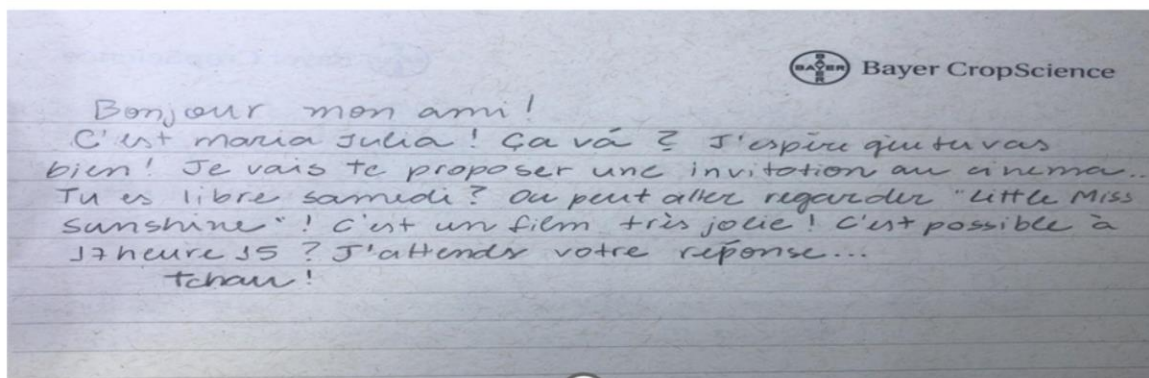 BAYER Bayer CropScience
Bonjour mon ami!
C'est maria Julia! Ça vá? J'espère que tu vas
bien! Je vais te proposer une invitation au cinema...
Tu es libre samedi? On peut aller regarder "Little Miss
Sunshine"! C'est un film très jolie! C'est possible à
17 heure 15? J'attends votre réponse...
Tchau!